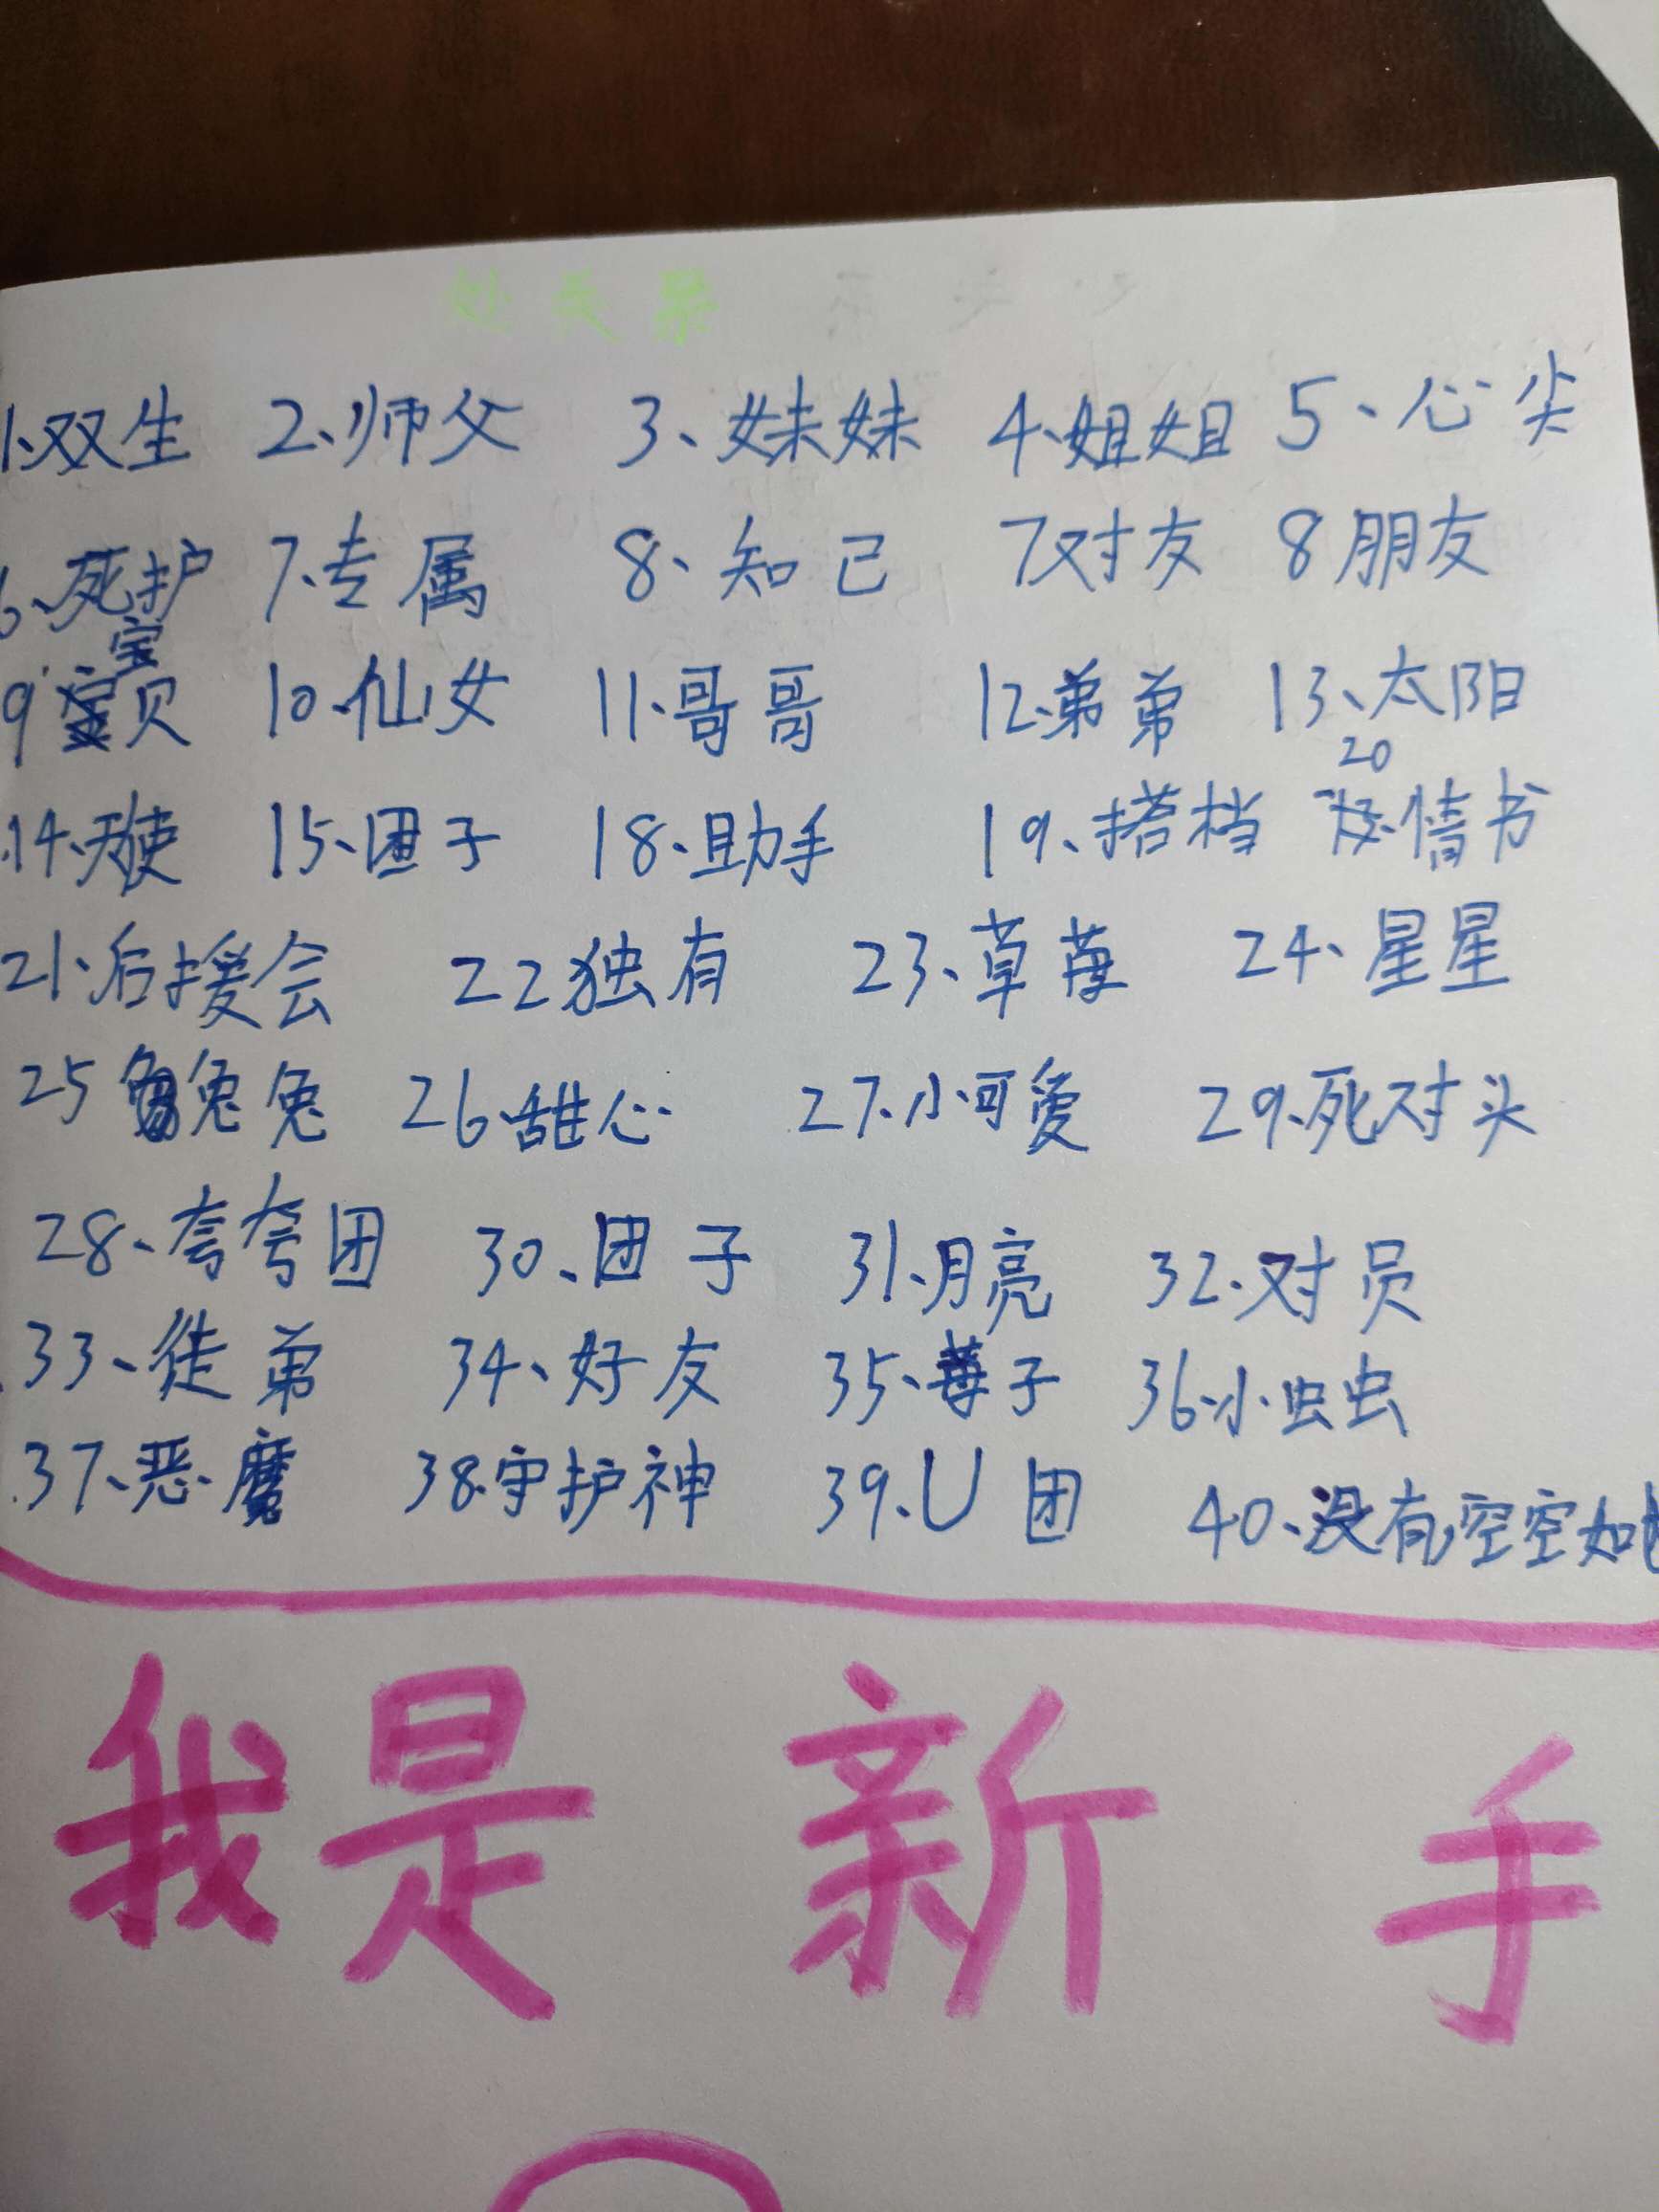 处关系
1、双生 2、师父 3、妹妹 4、姐姐 5、心尖
6、死护 7、专属 8、知己 7对友 8朋友
9宝贝 10、仙女 11、哥哥 12、弟弟 13、太阳
14、天使 15、团子 18、助手 19、搭档 20情书
21、后援会 22独有 23、草莓 24、星星
25兔兔 26、甜心 27、小可爱 29、死对头
28、夸夸团 30、团子 31、月亮 32、对员
33、徒弟 34、好友 35、尊子 36、小虫虫
37、恶魔 38、守护神 39、U团 40、没有,空空如也
我是新手